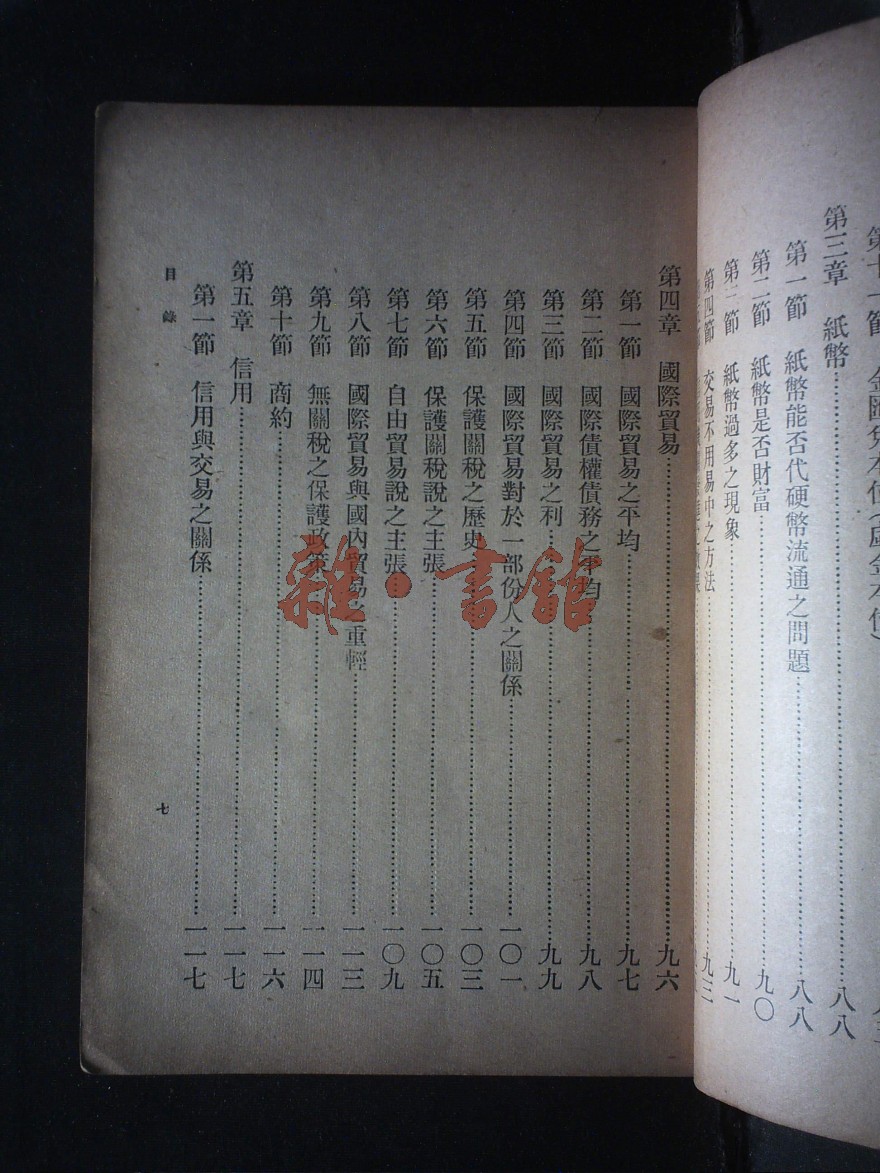 第十一節 金匯兌本位(虛金本位)
第三章 紙幣……八八
第一節 紙幣能否代硬幣流通之問題……八八
第二節 紙幣是否財富……九〇
第三節 紙幣過多之現象……九一
第四節 交易不用易中之方法……九三
第四章 國際貿易……九六
第一節 國際貿易之平均……九七
第二節 國際債權債務之平均……九八
第三節 國際貿易之利……九九
第四節 國際貿易對於一部份人之關係……一〇一
第五節 保護關稅之歷史……一〇三
第六節 保護關稅說之主張……一〇五
第七節 自由貿易說之主張……一〇九
第八節 國際貿易與國內貿易之重輕……一一三
第九節 無關稅之保護政策……一一四
第十節 商約……一一六
第五章 信用……一一七
第一節 信用與交易之關係……一一七
目錄
七
雜·書館